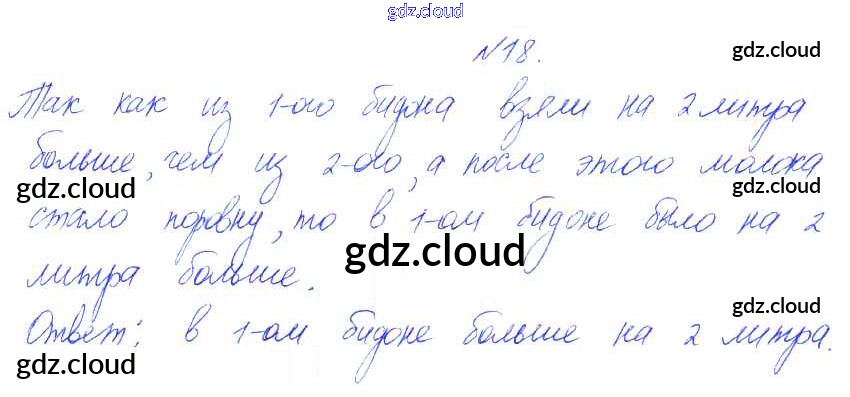 gdz.cloud
№18.
gdz.cloud
Так как из 1-ого бидона взяли на 2 литра
больше, чем из 2-ого, а после этого молока
gdz.cloud gdz.cloud
стало поровну, то в 1-ом бидоне было на 2
gdz.cloud
литра больше.
gdz.cloud
Ответ: в 1-ом бидоне больше на 2 литра.
gdz.cloud